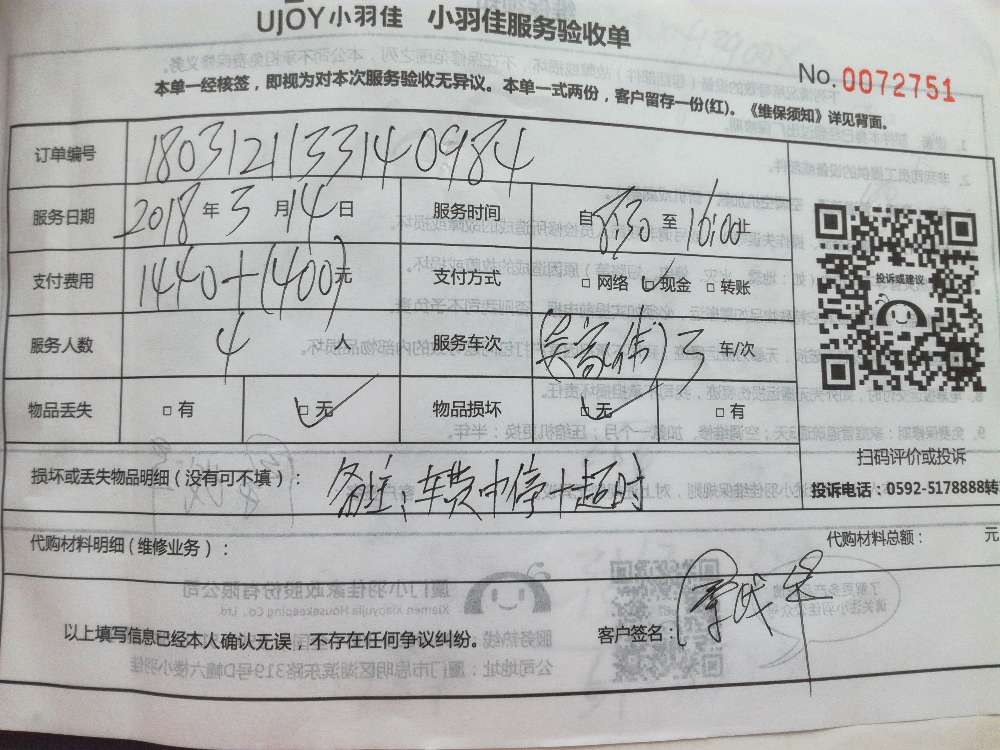 UJOY小羽佳 小羽佳服务验收单
No.0072751
本单一经核签，即视为对本次服务验收无异议。本单一式两份，客户留存一份(红)。《维保须知》详见背面。
订单编号 180312113314 0984
服务日期 2018 年 3 月 14 日 服务时间 自 8:30 至 10:00 止
支付费用 1440+(400) 元 支付方式 □ 网络 □ 现金 □ 转账
投诉或建议
服务人数 4 人 服务车次 3 车/次
物品丢失 □ 有 □ 无 物品损坏 □ 无 □ 有
扫码评价或投诉
损坏或丢失物品明细（没有可不填）： 备注：车费中停+超时
投诉电话：0592-5178888转
代购材料明细（维修业务）： 代购材料总额： 元
以上填写信息已经本人确认无误，不存在任何争议纠纷。 客户签名：